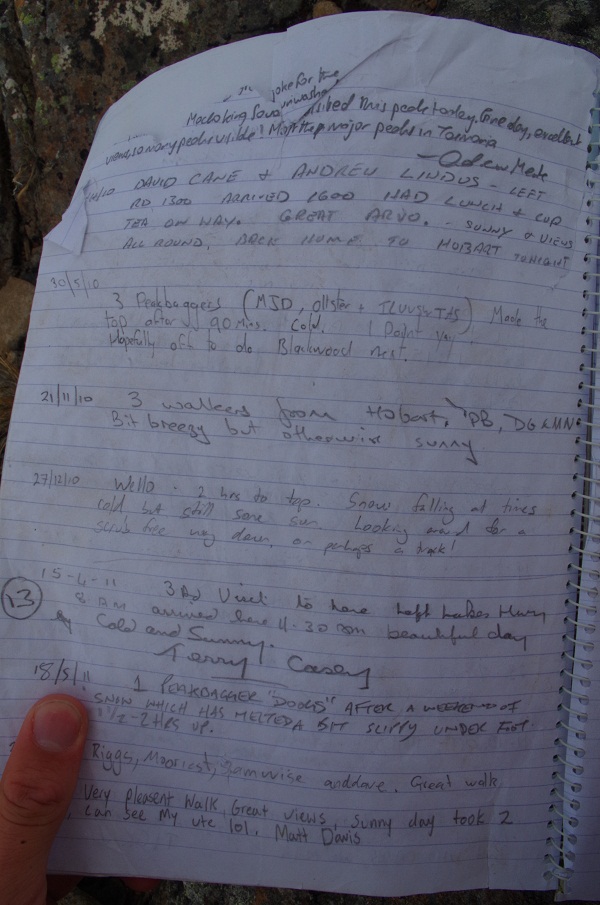 joke for the
unwashed
Modoking Sava visited this peak today. Fine day, excellent
views so many peaks visible! Most top major peaks in Tasmania
- Adem Mete
/10 DAVID CANE & ANDREW LINDUS - LEFT
RD 1300 ARRIVED 1600 HAD LUNCH & CUP
TEA ON WAY. GREAT ARVO. - SUNNY & VIEWS
ALL ROUND. BACK HOME TO HOBART TONIGHT
30/5/10
3 Peakbaggers (MJD, ollster + ) Made the
top after 90 mins. Cold. 1 Point
Hopefully off to do Blackwood next.
21/11/10 3 walkers from Hobart, PB, DG & MN
Bit breezy but otherwise sunny
27/12/10 Wello - 2 hrs to top. Snow falling at times
cold, but still some sun. Looking around for a
scrub free way down, or perhaps a track!
15-4-11 3rd Visit to here Left Lakes Hwy
13 8 AM arrived here 11.30 beautiful day
Cold and Sunny.
Terry Casey
18/5/11 1 PEAKBAGGER "DOOGS" AFTER A WEEKEND OF
SNOW WHICH HAS MELTED A BIT SLIPPY UNDER FOOT.
1 1/2 - 2 HRS UP.
Riggs, Mooriest, Samwise and dave. Great walk
Very Pleasent Walk, Great views, sunny day took 2
can see My ute lol. Matt Davis